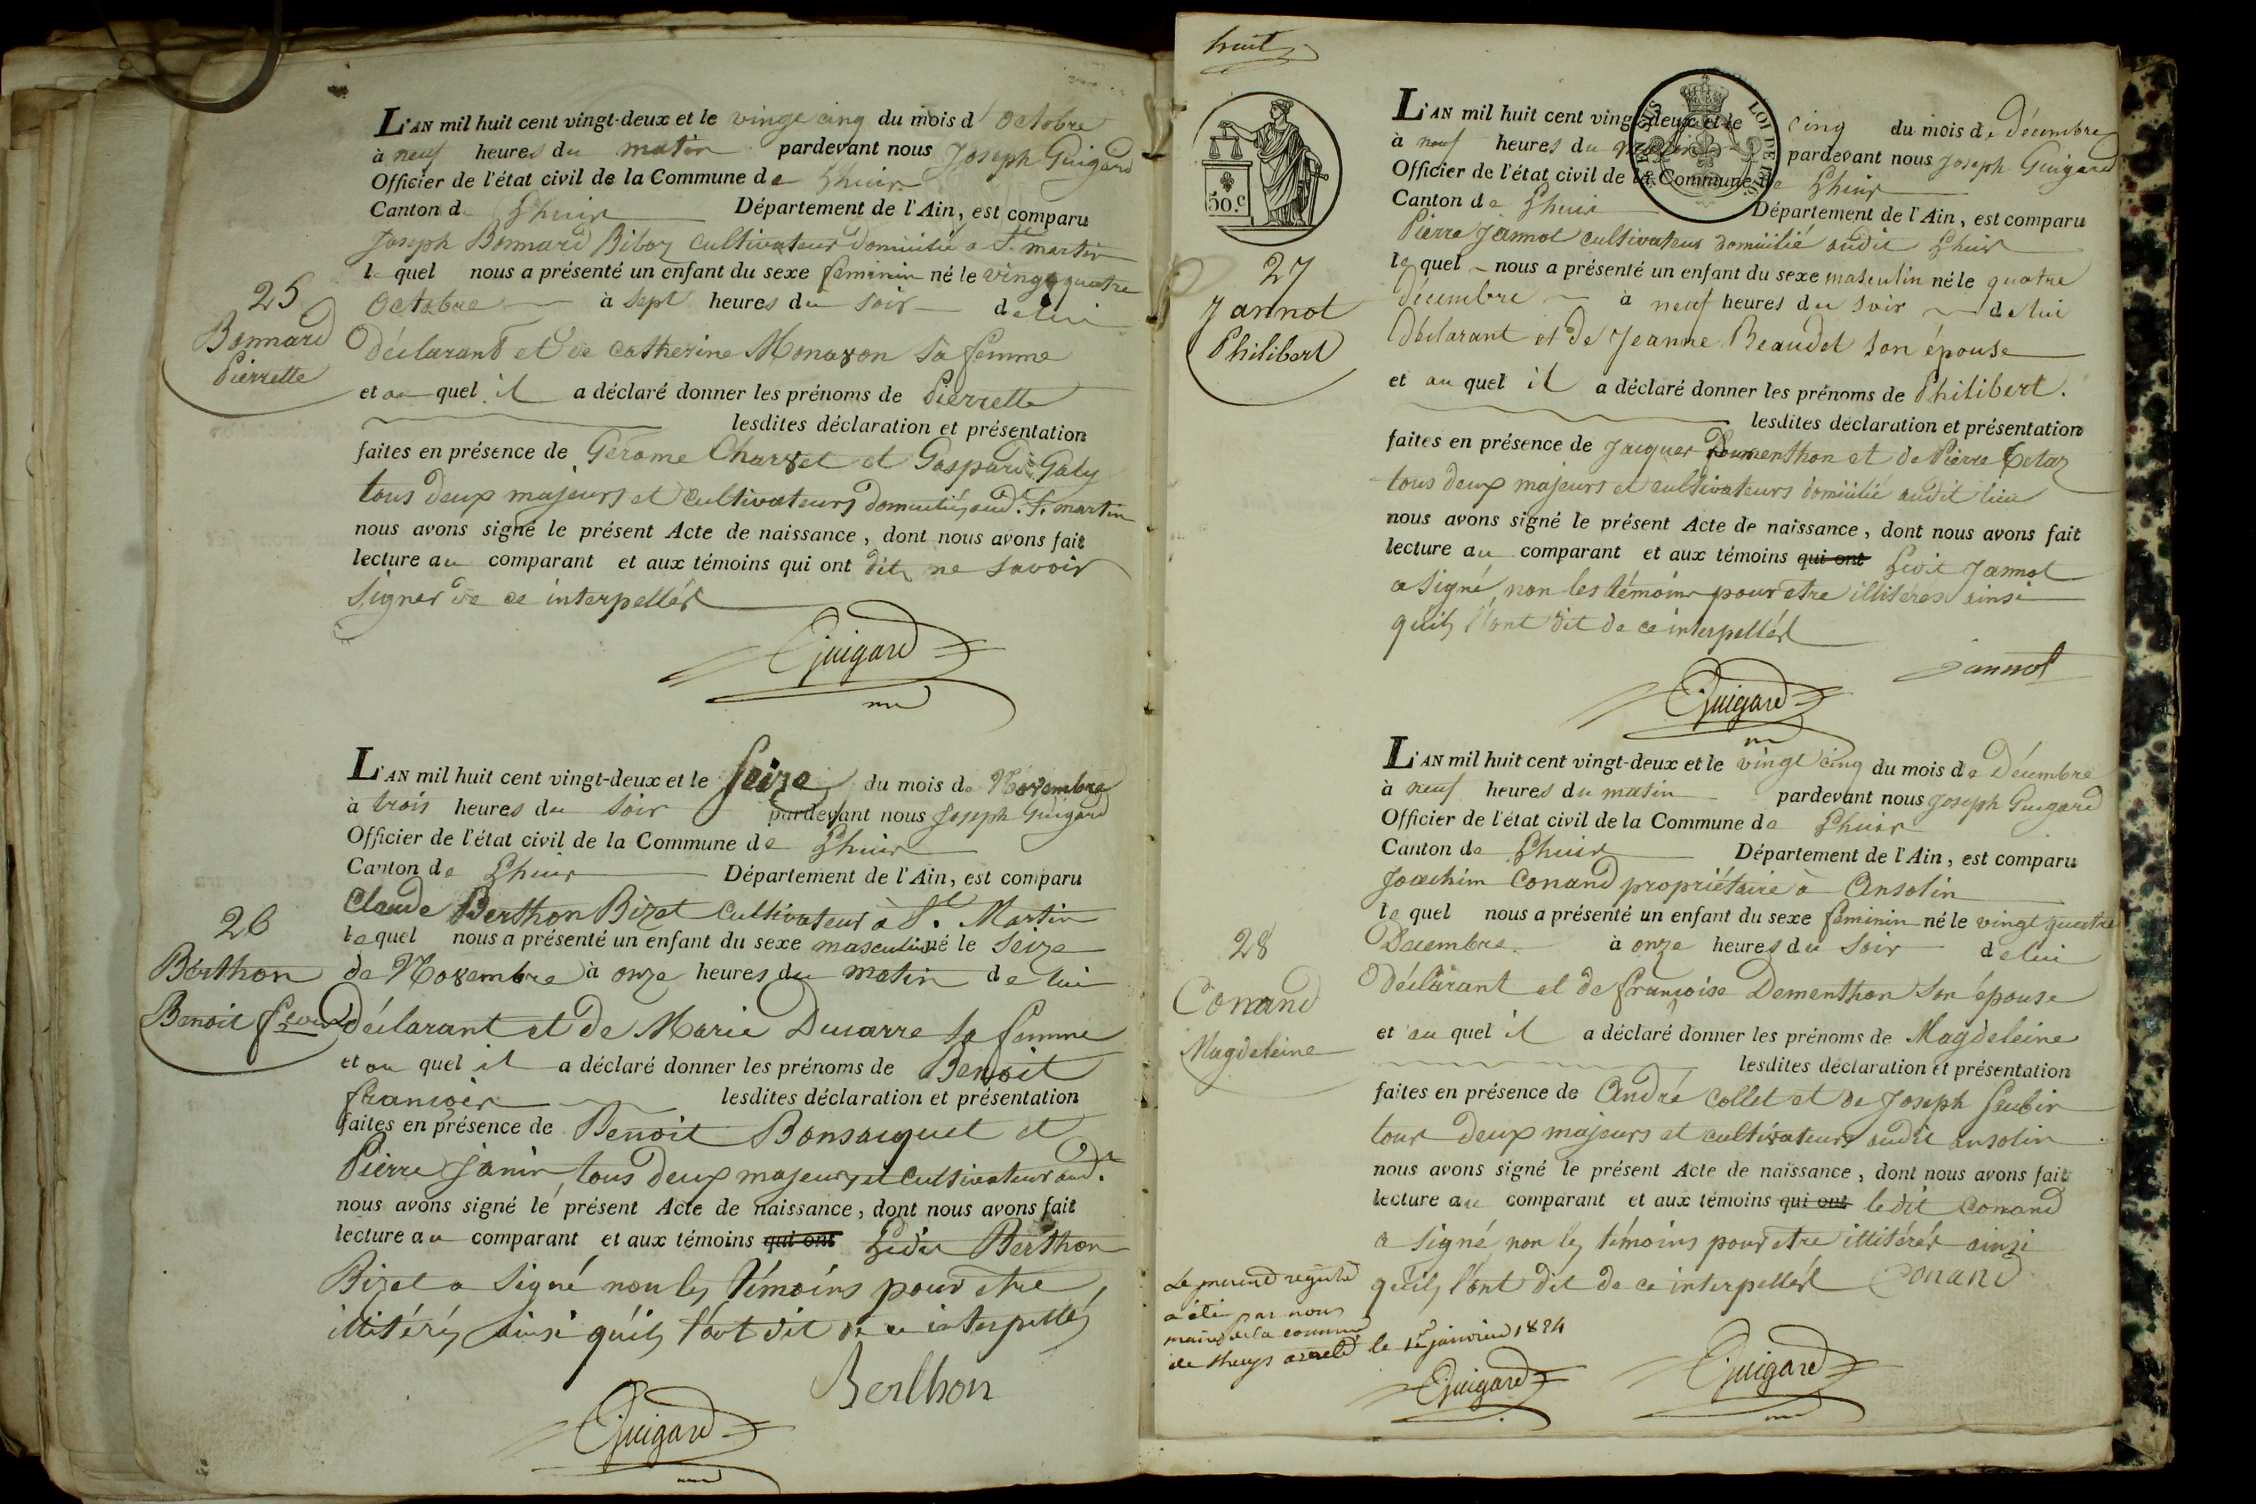 25
Bonnard
Pierrette
L'AN mil huit cent vingt-deux et le vingt cinq du mois d'octobre
à neuf heures du matin pardevant nous Joseph Guigard
Officier de l'état civil de la Commune de Lhuir
Canton de Lhuir Département de l'Ain, est comparu
Joseph Bonnard Biboz cultivateur domicilié a St. martin
le quel nous a présenté un enfant du sexe feminin né le vingt quatre
octobre à sept heures du soir de lui
déclarant et de catherine Monavon sa femme
et au quel il a déclaré donner les prénoms de Pierrette
lesdites déclaration et présentation
faites en présence de Gérome Charvet et Gaspard Galy
tous deux majeurs et cultivateurs domiciliés aud. St. martin
nous avons signé le présent Acte de naissance, dont nous avons fait
lecture au comparant et aux témoins qui ont dit ne savoir
signer de ce interpellés
JGuigard
26
Berthon
Benoit f.çois
L'AN mil huit cent vingt-deux et le Seize du mois de Novembre
à trois heures du soir pardevant nous Joseph Guigard
Officier de l'état civil de la Commune de Lhuir
Canton de Lhuir Département de l'Ain, est comparu
Claude Berthon Bizet cultivateur à St. Martin
le quel nous a présenté un enfant du sexe masculin né le Seize
de Novembre à onze heures du matin de lui
déclarant et de Marie Ducarre sa femme
et au quel il a déclaré donner les prénoms de Benoit
françois lesdites déclaration et présentation
faites en présence de Benoit Bonsacquet et
Pierre Janin, tous deux majeurs et cultivateur aud.
nous avons signé le présent Acte de naissance, dont nous avons fait
lecture au comparant et aux témoins qui ont Ledit Berthon
Bizet a signé non les témoins pour etre
illitérés ainsi quils l'ont dit de ce interpellés
Berthon
JGuigard
huit
50.c
LOI DE 1816
27
Jannot
Philibert
L'AN mil huit cent vingt-deux et le cinq du mois de décembre
à neuf heures du matin pardevant nous Joseph Guigard
Officier de l'état civil de la Commune de Lhuir
Canton de Lhuir Département de l'Ain, est comparu
Pierre Jannot cultivateur domicilié audit Lhuir
le quel nous a présenté un enfant du sexe masculin né le quatre
décembre à neuf heures du soir de lui
déclarant et de Jeanne Beaudet son épouse
et au quel il a déclaré donner les prénoms de Philibert.
lesdites déclaration et présentation
faites en présence de Jacques Dementhon et de Pierre Tetaz
tous deux majeurs et cultivateurs domicilié audit lieu
nous avons signé le présent Acte de naissance, dont nous avons fait
lecture au comparant et aux témoins qui ont Ledit Jannot
a signé non les témoins pour etre illitérés ainsi
quils l'ont dit de ce interpellés
Jannot
JGuigard
28
Conand
Magdeleine
L'AN mil huit cent vingt-deux et le vingt cinq du mois de Décembre
à neuf heures du matin pardevant nous Joseph Guigard
Officier de l'état civil de la Commune de Lhuir
Canton de Lhuir Département de l'Ain, est comparu
Joachim Conand propriétaire à Ansolin
le quel nous a présenté un enfant du sexe feminin né le vingt quatre
Décembre à onze heures du soir de lui
déclarant et de françoise Dementhon son épouse
et au quel il a déclaré donner les prénoms de Magdeleine
lesdites déclaration et présentation
faites en présence de André Collet et de Joseph
tous deux majeurs et cultivateurs audit ansolin
nous avons signé le présent Acte de naissance, dont nous avons fait
lecture au comparant et aux témoins qui ont ledit Conand
a signé non les témoins pour etre illitérés ainsi
quils l'ont dit de ce interpellés Conand
JGuigard
a été par nous
maire de la commune
de arreté le 1er janvier 1824
JGuigard